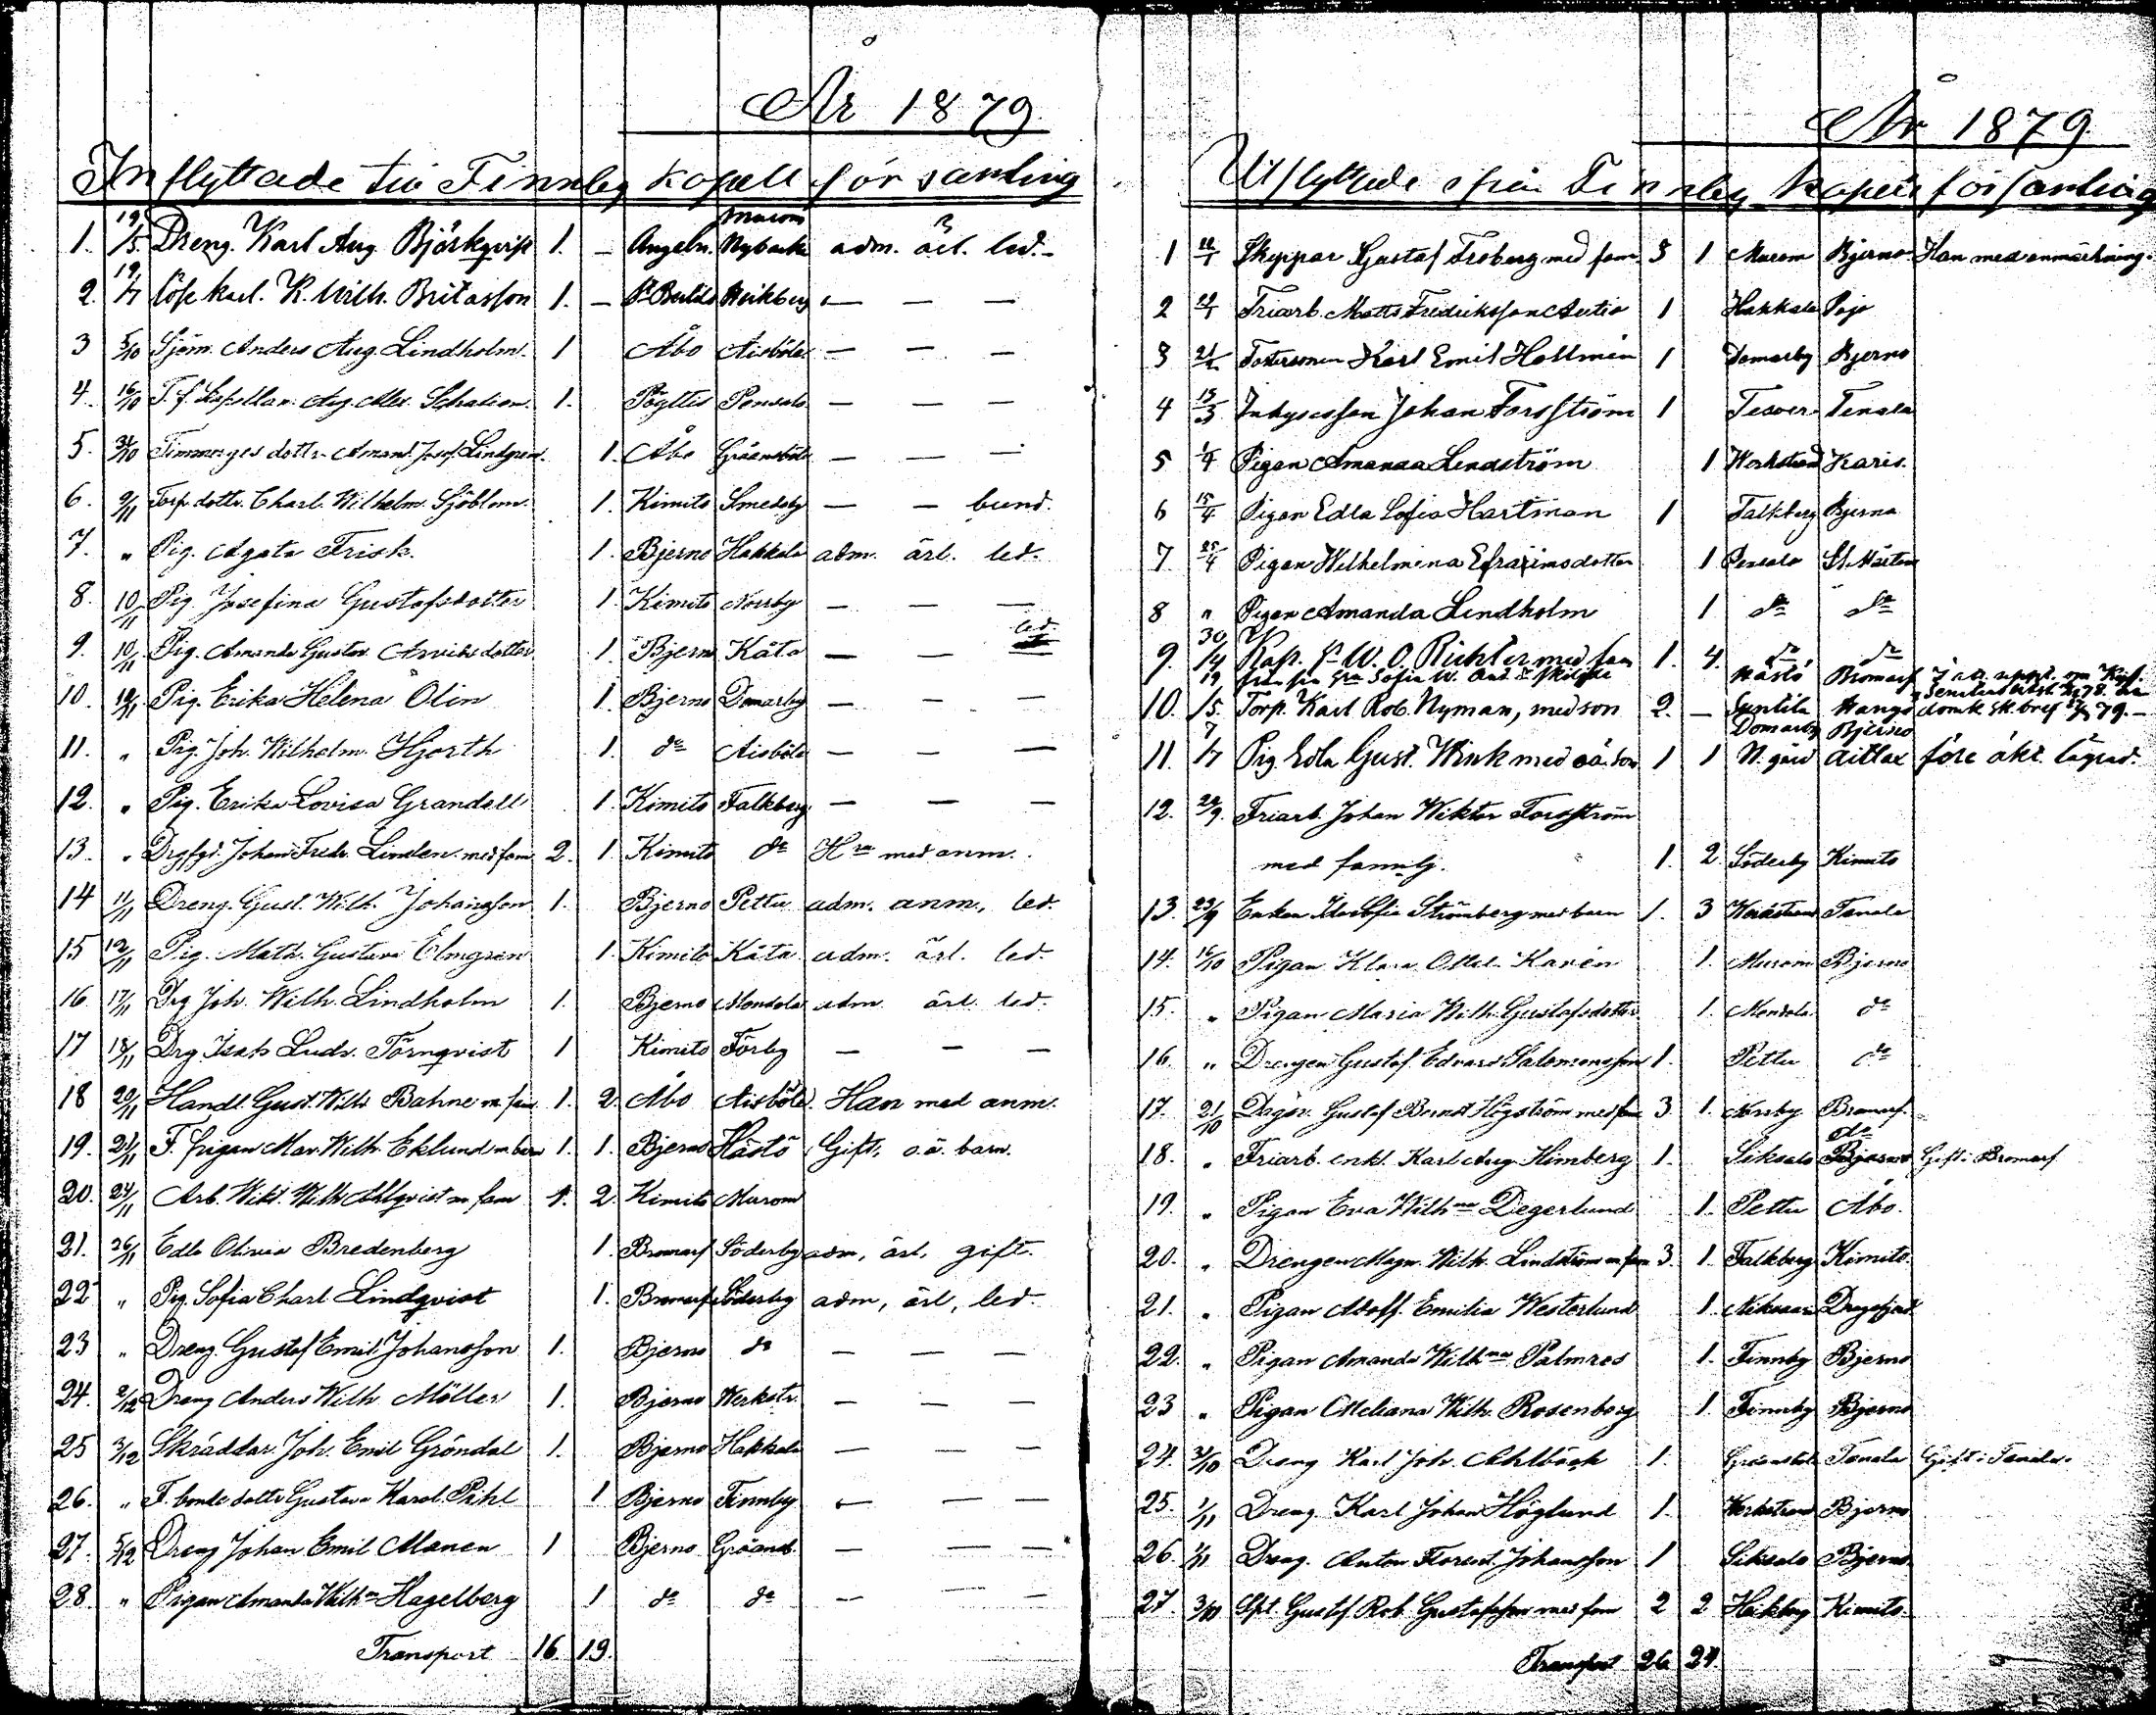 År 1879.
Inflyttade till Finnby kapell församling
Murom
1. 19/5 Dreng. Karl Aug. Björkqvist 1. – Angeln. Nybacka adm. ärl. led. –
2. 19/7 Lösk. karl. K. Wilh. Britasson 1. – – – –
3 5/10 Sjöm. Anders Aug. Lindholm. 1 Åbo Aisböle – – –
4. 16/10 T. f. Kapellan. Aug. Alex. 1. Pöyttis Pensalo – – –
5. 31/10 dottr. Amand. Josef. Lindgren. 1. Åbo Gräansböle – – –
6. 9/11 Torp. dottr. Charl. Wilhelm. Sjöblom. 1. Kimito Smedsby – – bund.
7. " Pig. Agata Frisk. 1. Bjerno Hakkala adm. ärl. led.
8. 10/11 Pig. Josefina Gustafsdotter 1. Kimito Norrby – – –
9. 10/11 Pig. Amanda Gustav. Arvidsdotter 1. Bjerno Kåta – – led.
10. 10/11 Pig. Erika Helena Olin 1. Bjerno Domarby – – –
11. " Pig. Joh. Wilhelm. Hjorth 1. do Aisböle – – –
12. " Pig. Erika Lovisa Grandell 1. Kimito Falkberg – – –
13. " Johan Fredr. Linden. med fam 2. 1. Kimito do med anm.
14 11/11 Dreng. Gust. Wilh. Johansson 1. Bjerno Pettu adm. anm., led.
15 12/11 Pig. Math. Gustava Elmgren 1. Kimito Kåta adm. ärl. led.
16. 17/11 Drg Joh. Wilh. Lindholm 1. Bjerno Mondola adm. ärl. led.
17 18/11 Drg. Isak Ludv. Törnqvist 1 Kimito Förby – – –
18 20/11 Handl. Gust. Wilh. Bahne m. fam 1. 2. Åbo Aisböle Han med anm.
19. 21/11 F. pigan Mar. Wilh. Eklund m. barn 1. 1. Bjerno Hästö Gift. o.ä. barn.
20. 24/11 Arb. Wikt. Wilh. Ahlqvist m. fam 1. 2. Kimito Murom
21. 26/11 Edla Olivia Bredenberg 1. Bromarf Söderby adm, ärl, gift.
22 " Pig. Sofia Charl. Lindqvist 1. Bromarf Söderby adm, ärl, led.
23 " Dreng. Gustaf Emil Johansson 1. Bjerno do – – –
24. 2/12 Dreng Anders Wilh. Möller 1. Bjerno Werkstr. – – –
25 3/12 Skräddar. Joh. Emil Gröndal 1. Bjerno Hakkala – – –
26. " F. bonde dottr Gustava Karol. Pihl 1 Bjerno Finnby – – –
27. 5/12 Dreng Johan Emil Manen 1 Bjerno Gräansb. – – –
28. " Pigan Amanda Wilhna Hagelberg 1 do do – – –
Transport 16 19.
År 1879.
Utflyttade från Finnby kapell församling
1 Skeppar Gustaf Froberg med fam 3 1 Murom Bjerno Han med anmärkning.
2 Friarb. Matts Fredriksson Autio 1 Hakkala Pojo
3 Karl Emil Hellmén 1 Domarby Bjerno
4 15/3 Inhysesson Johan Forsström 1 Tenala
5 1/4 Pigan Amanda Lindström 1 Werkstrand Karis.
6 15/4 Pigan Edla Sofia Hartman 1 Falkberg Bjerno
7 25/4 Pigan Wilhelmina Efraimsdotter 1 Pensalo St. Mårtens
8 " Pigan Amanda Lindholm 1 do do
9. 30/4 Kap. W. O. Richter med fam 1. 4. do do
Hästö Bromarf
10. 19/5. Torp. Karl Rob. Nyman, med son 2. – Hangö
Domarby Bjerno
11. 7/7 Pig. Edla Gust. Wink med oä. son 1 1 N. gård före äkt. lägrad.
12. 22/9. Friarb. Johan Wiktor Forsström
med familj. 1. 2. Söderby Kimito
13. 23/9 Enkan Strömberg med barn 1. 3 Werkstrand Tenala
14. 16/10 Pigan Klara Karén 1. Murom Bjerno
15. " Pigan Maria Wilh. Gustafsdotter 1. Mondola do
16. " Drengen Gustaf Edvard Salomonsson 1. Pettu do
17. 21/10 Gustaf Bernst. Högström med fam 3. 1. Norrby Bromarf.
do
18. " Friarb. enkl. Karl Aug. Himberg 1. Siksalo Bjerno Gift i Bromarf
19. " Pigan Eva Wilhna Degerlund 1. Pettu Åbo.
20. " Drengen Magn. Wilh. Lindström m. fam 3. 1. Falkberg Kimito.
21. " Pigan Adolf. Emilia Westerlund 1. Dragsfjärd
22. " Pigan Amanda Wilhna Palmros 1. Finnby Bjerno
23 " Pigan Wilh. Rosenberg 1. Finnby Bjerno
24. 31/10 Dreng Karl Joh. Ahlbäck 1. Gräansböle Tenala Gift i Tenala.
25. 1/11 Dreng. Karl Johan Höglund 1. Werkstrand Bjerno
26. 1/11 Dreng. Anton Florent. Johansson 1 Siksalo Bjerno
27. Gustaf Rob. Gustafsson med fam 2 2 Kimito.
Transport 26 24.